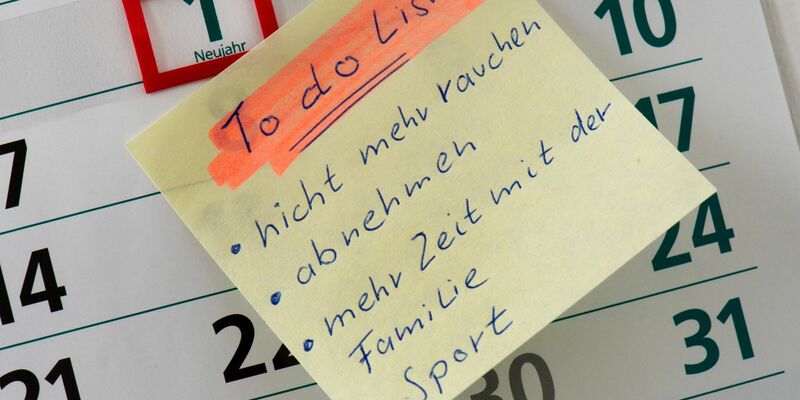 1
Neujahr
10
7
17
14
24
21
22
30
31
To do Lis
• nicht mehr rauchen
• abnehmen
• mehr Zeit mit der
Familie
Sport